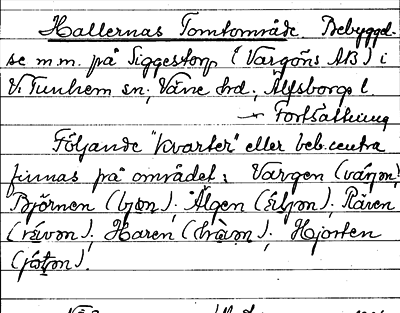 Hallernas Tomtområde. Bebyggel-
se m.m. på Siggestorp (Vargöns AB) i
V. Tunhem sn, Väne hd, Älfsborgs l.
→ Fortsättning
Följande "kvarter" eller beb.centra
finnas på området: Vargen (várjən),
Björnen (bjœ̀n); Älgen (éljən); Räven
(rǽvən); Haren (hàən); Hjorten
(jóʈən).